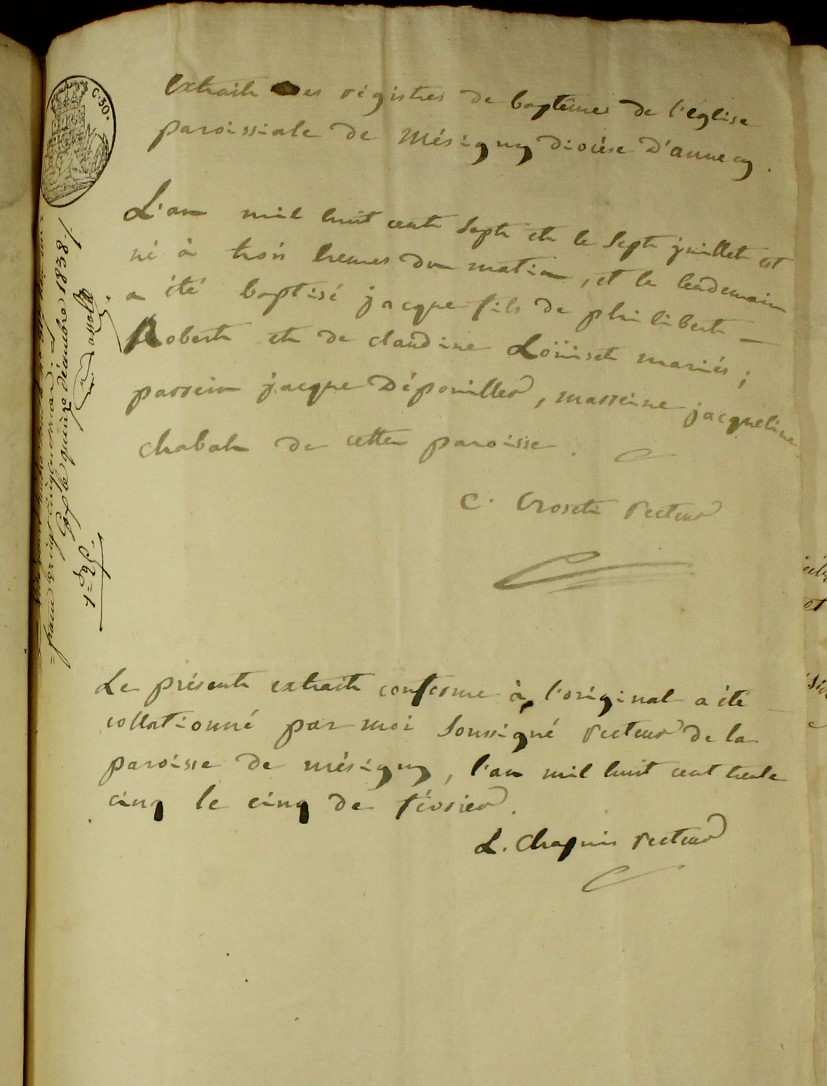 Extrait des régistres de baptêmes de l'église
paroissiale de Mésigny diocèse D'annecy.
L'an mil huit cent Sept et le Sept juillet est
né à trois heures du matin, et le lendemain
a été baptisé jacque fils de philibert
Robert et de claudine Loüiset mariés ;
parrein jacque Dépouilles, marreine jacqueline
chabal de cette paroisse.
C. Croset recteur
Le présent extrait conforme à l'original a été
collationné par moi Soussigné recteur de la
paroisse de mésigny, l'an mil huit cent trente
cinq le cinq de février.
L. Chapuis recteur
C. 50.
quinze décembre 1838